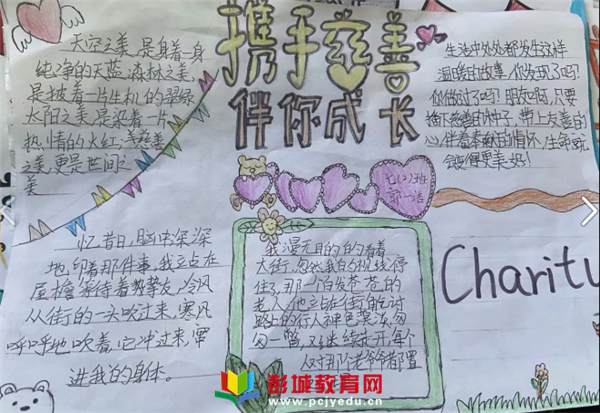 携手慈善
伴你成长
天空之美,是身着一身
纯净的天蓝,森林之美,
是披着一片生机的翠绿
太阳之美,是染着一片
热情的火红;慈善
之美,更是世间之
美
生活中处处都发生这样
温暖的故事,你发现了吗?
你做过了吗?朋友啊,只要
播下慈善的种子,带上友善的
心,伴着奉献的情怀,生命就
会变得更美好!
七(2)班
郭一洁
忆昔日,脑中深深
地印着那件事,我立在
屋檐等待着,冷风
从街的一头吹过来,寒风
呼呼地吹着,它冲过来,窜
进我的身体。
我漫无目的的看着
大街,忽然我的视线停
住了,那一个白发苍苍的
老人,他立在街角乞讨
路上的行人神色冷漠,匆
匆一瞥,又继续走开,每个
人对那老爷爷都置
Charity
彭城教育网
www.pcjyedu.cn